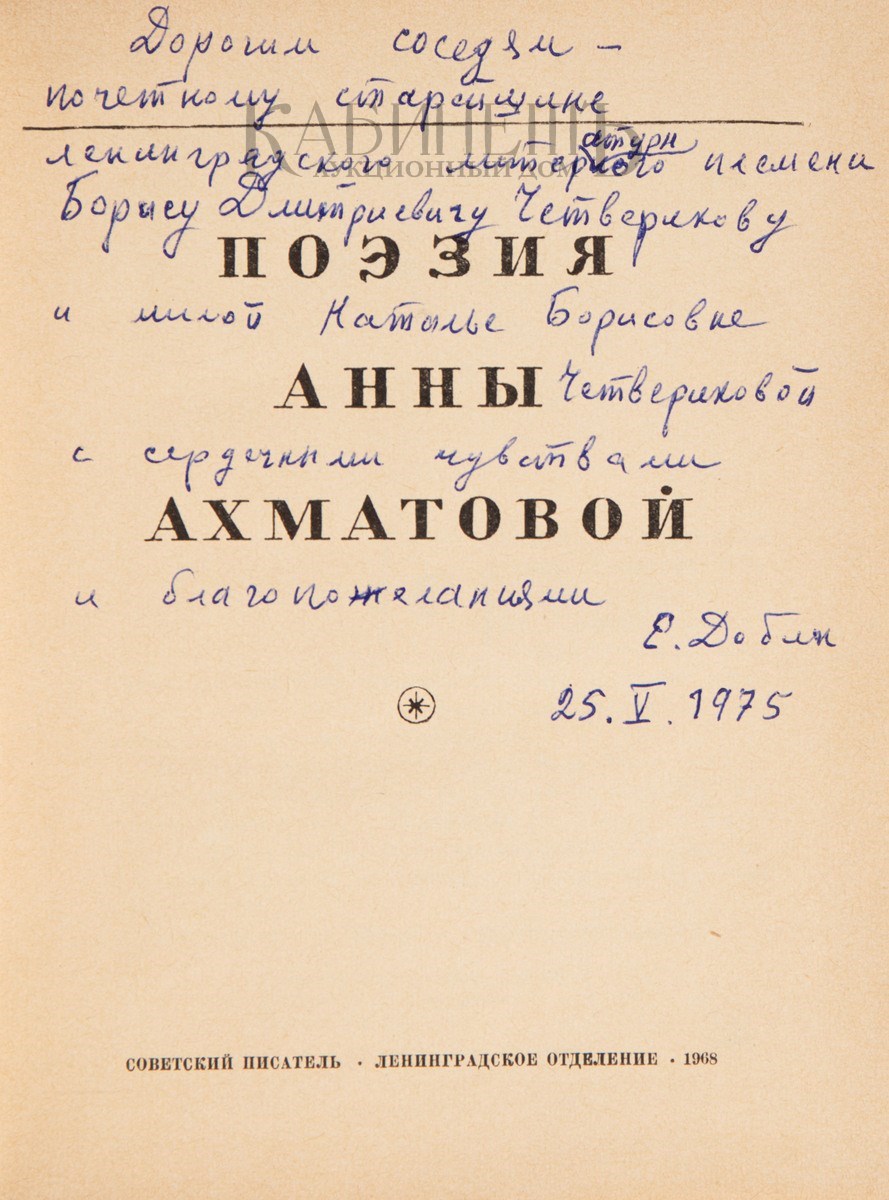 Дорогим соседям –
почетному старейшине
КАБИНЕТЪ
АУКЦИОННЫЙ ДОМ
атурн
ленинградского литерного племени
Борису Дмитриевичу Четверикову
ПОЭЗИЯ
и милой Наталье Борисовне
АННЫ Четвериковой
с сердечными чувствами
АХМАТОВОЙ
и благопожеланиями
Е. Добин
25. V. 1975
СОВЕТСКИЙ ПИСАТЕЛЬ · ЛЕНИНГРАДСКОЕ ОТДЕЛЕНИЕ · 1968